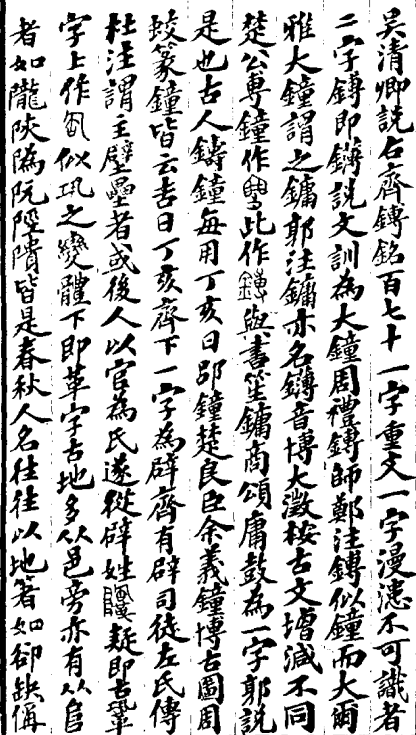 吳清卿説右齊鎛銘百七十一字重文一字漫漶不可識者
二字鎛即鑮説文訓為大鐘周禮鎛師鄭注鎛似鐘而大爾
雅大鐘謂之鏞郭注鏞亦名鑮音博大澂桉古文增減不同
楚公尃鐘作此作與書笙鏞商頌庸鼓為一字郭説
是也古人鑄鐘每用丁亥日郘鐘楚良臣余義鐘博古圖周
蛟篆鐘皆云吉日丁亥齊下一字為辟齊有辟司徒左氏傳
杜注謂主壁壘者或後人以官為氏遂從辟姓疑即古鞏
字上作似巩之變體下即革字古地多从邑旁亦有从𨸏
者如隴陝隃阮陘隤皆是春秋人名往往以地箸如郤缺偁